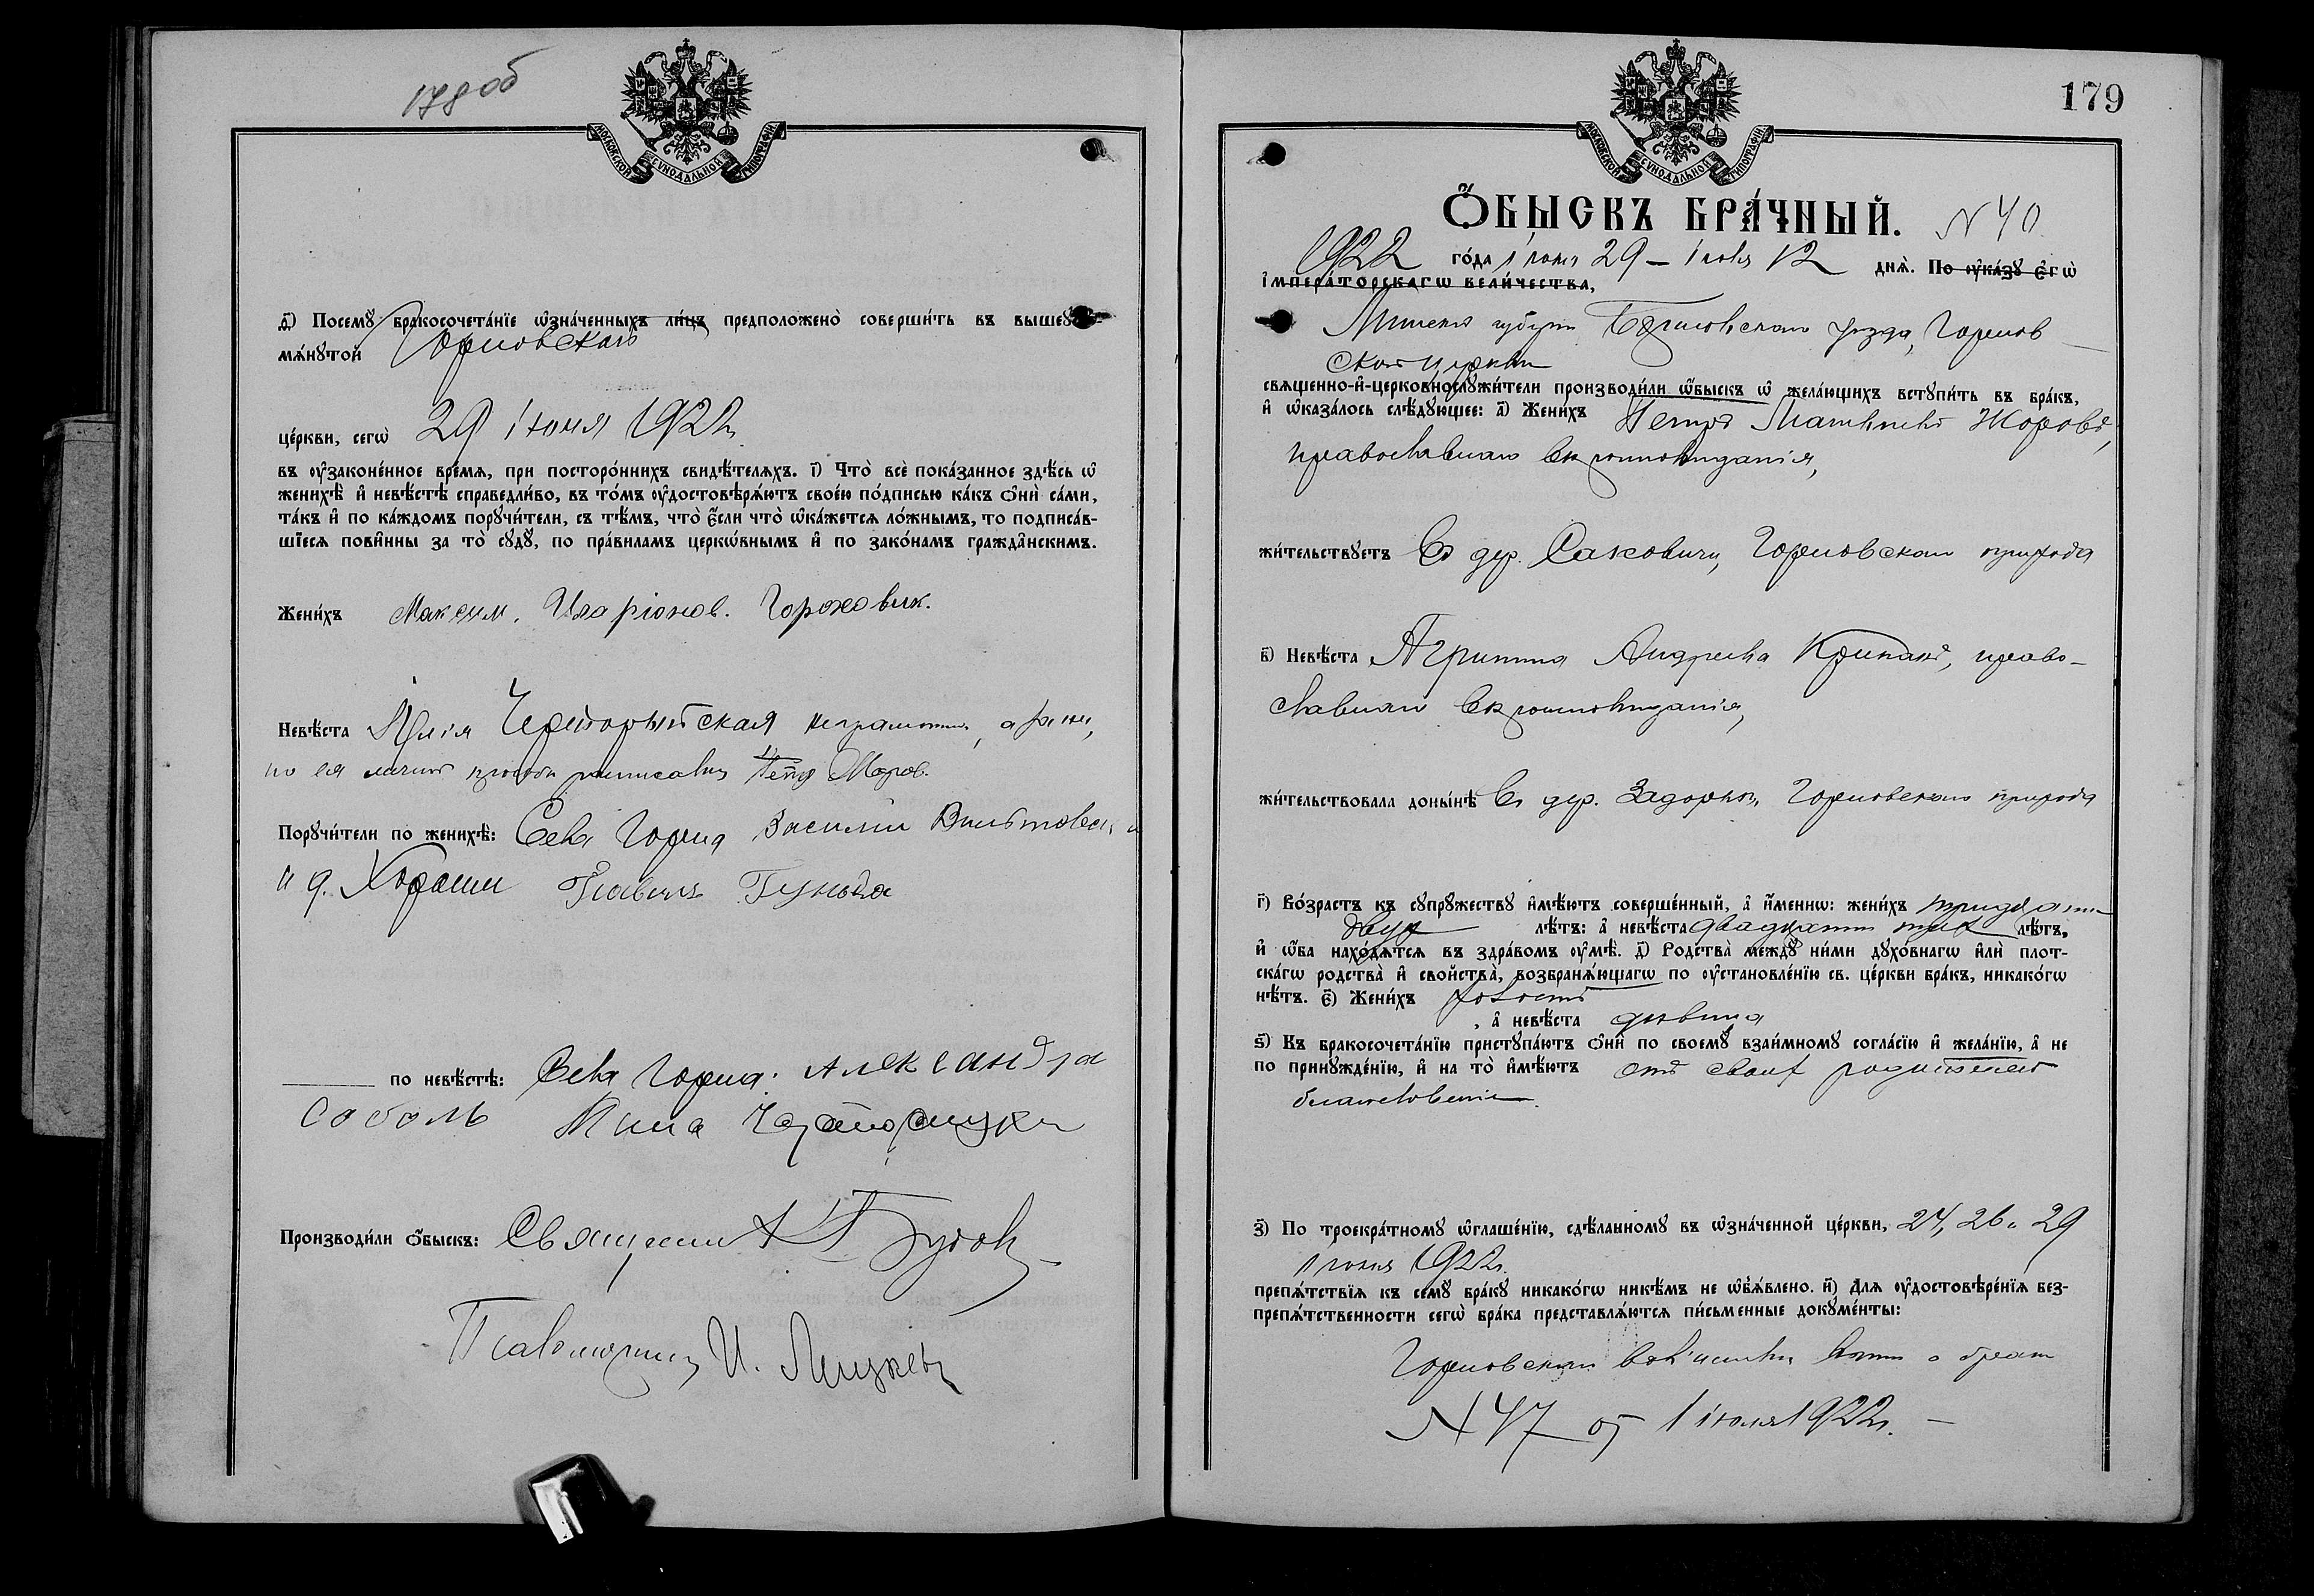 178 об
МОСКОВСКОЙ СУНОДАЛЬНОЙ ТИПОГРАФІИ
д҃) Посемꙋ̀ бракосочета́нїе ѡ҆зна́ченныхъ ли́цъ предположено̀ соверши́ть въ вышеꙋ-
мѧ́нꙋтой Горновской
це́ркви, сегѡ̀ 29 іюня 1922 г.
въ ᲂу҆законе́нное вре́мѧ, при посторо́ннихъ свидѣ́телѧхъ. і҃) Что̀ всѐ пока́занное здѣ́сь ѡ҆
женихѣ̀ и҆ невѣ́стѣ справедли́во, въ то́мъ ᲂу҆достовѣрѧ́ютъ свое́ю по́дписью ка́къ ѻ҆нѝ са́ми,
та́къ и҆ по ка́ждомъ порꙋчи́тели, съ тѣ́мъ, что̀ є҆́сли что̀ ѡ҆ка́жетсѧ ло́жнымъ, то подписа́в-
шїесѧ пови́нны за то̀ сꙋдꙋ̀, по пра́виламъ церкѡ́внымъ и҆ по зако́намъ гражда́нскимъ.
Жени́хъ Максим. Иларіонов. Гороховик.
Невѣ́ста Юлія неграмотная, а за нее,
по ея личной просьбе расписался Петр
Порꙋчи́тели по женихѣ̀: Села Горна Василий
и д. Хороши Павелъ
по невѣ́стѣ: Села Горна. Александра
Соболь
Производи́ли ѻ҆́быскъ: Священник
Псаломщик И.
179
МОСКОВСКОЙ СУНОДАЛЬНОЙ ТИПОГРАФІИ
Ѻ҆́БЫСКЪ БРА́ЧНЫЙ. N 40
1922 го́да іюня 29 – іюля 12 днѧ̀. По ᲂу҆ка́зꙋ є҆гѡ̀
і҆мпера́торскагѡ вели́чества,
Минской губерн. Борисовскаго уѣзда, Горнов-
ской церкви
свѧщенно-и҆-церковнослꙋжи́тели производи́ли ѻ҆́быскъ ѡ҆ жела́ющихъ встꙋпи́ть въ бра́къ,
и҆ ѡ҆каза́лось слѣ́дꙋющее: а҃) Жени́хъ Петръ Матвѣевъ Жоровъ,
православнаго вѣроисповѣданія,
жи́тельствꙋетъ въ дер. Саковичи, Горновскаго прихода
в҃) Невѣ́ста Агриппина Андреева право-
славнаго вѣроисповѣданія,
жи́тельствовала доны́нѣ въ дер. Задорье, Горновскаго прихода
г҃) Во́зрастъ къ сꙋпрꙋ́жествꙋ и҆мѣ́ютъ соверше́нный, а҆ и҆́меннѡ: жени́хъ тридцати
двух лѣ́тъ: а҆ невѣ́ста двадцати трех лѣ́тъ,
и҆ ѻ҆́ба нахо́дѧтсѧ въ здра́вомъ ᲂу҆мѣ̀. д҃) Родства̀ междꙋ̀ ни́ми дꙋхо́внагѡ и҆лѝ плот-
ска́гѡ родства̀ и҆ сво́йства̀, возбранѧ́ющагѡ по ᲂу҆становле́нїю св. це́ркви бра́къ, никако́гѡ
нѣ́тъ. є҃) Жени́хъ холостъ
, а҆ невѣ́ста дѣвица
ѕ҃) Къ бракосочета́нїю пристꙋпа́ютъ ѻ҆нѝ по своемꙋ̀ взаи́мномꙋ согла́сїю и҆ жела́нїю, а҆ не
по принꙋжде́нїю, и҆ на то̀ и҆мѣ́ютъ отъ своих родителей
благословеніе.
з҃) По троекра́тномꙋ ѡ҆глаше́нїю, сдѣ́ланномꙋ въ ѡ҆зна́ченной це́ркви, 24, 26 и 29
іюня 1922 г.
препѧ́тствїѧ къ семꙋ̀ бра́кꙋ никако́гѡ никѣ́мъ не ѡ҆б̾ѧ́влено. и҃) Длѧ ᲂу҆достовѣре́нїѧ без-
препѧ́тственности сегѡ̀ бра́ка представлѧ́ютсѧ пи́сьменные докꙋме́нты:
Горновскаго о бракѣ
N 47 от 1 іюля 1922 г. –